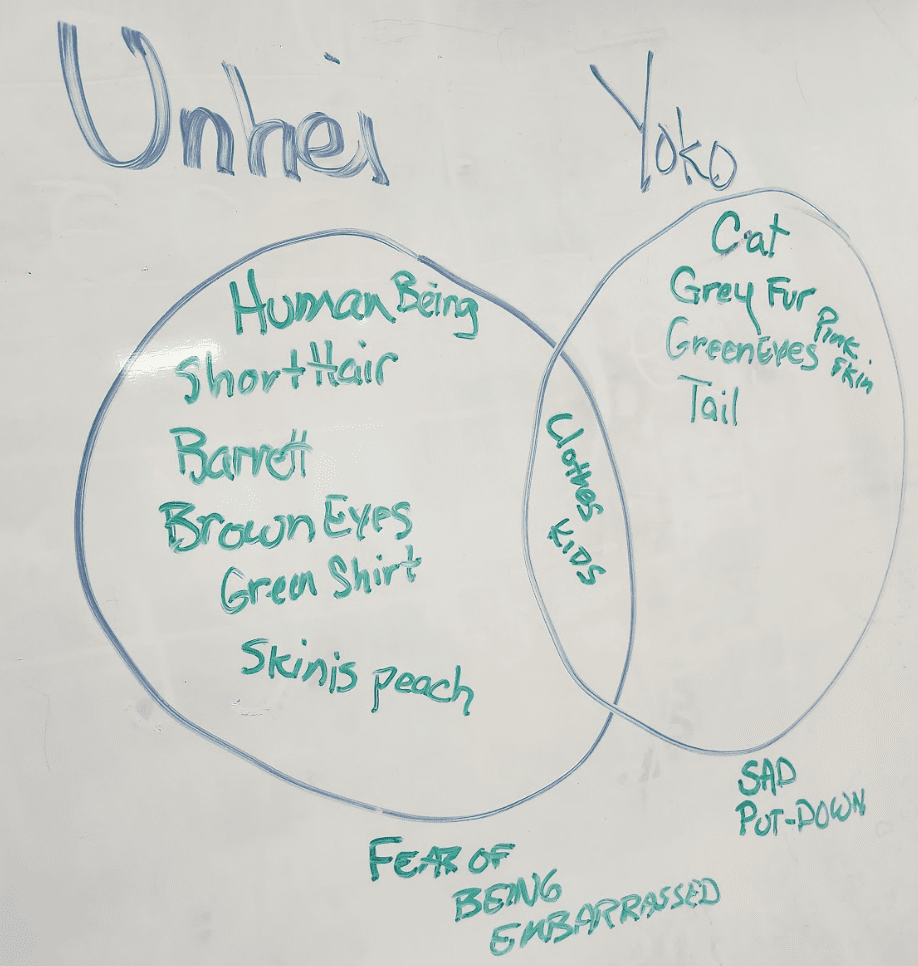 Unhei
Yoko
Human Being
Short Hair
Barrett
Brown Eyes
Green Shirt
Skin is peach
Clothes
KIDS
Cat
Grey Fur
Green Eyes
Pink
Skin
Tail
SAD
PUT-DOWN
FEAR OF
BEING
EMBARRASSED